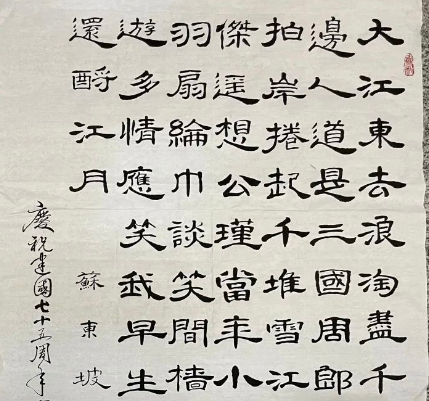 大江東去浪淘盡千
邊人道是三國周郎
拍岸捲起千堆雪江
傑遥想公瑾當年小
羽扇綸巾談笑間檣
遊多情應笑我早生
還酹江月
蘇東坡
慶祝建國七十五周年